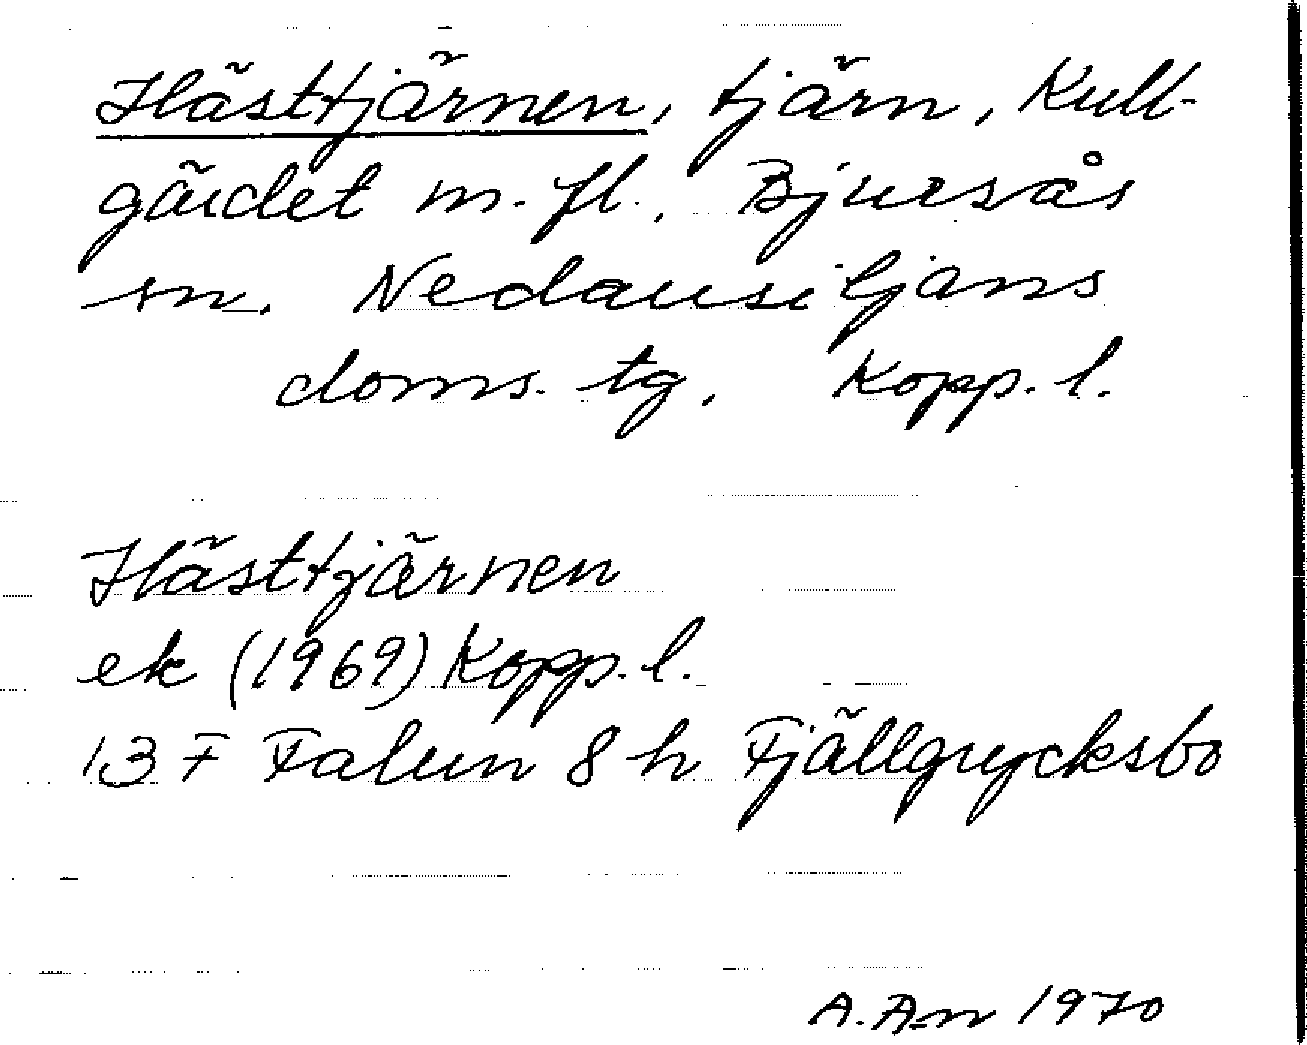 Hästtjärnen, tjärn, Kull-
gärdet m.fl., Bjursås
sn. Nedansiljans
doms. tg. Kopp. l.
Hästtjärnen
ek (1969) Kopp. l.
13 F Falun 8 h Fjällgrycksbo
A. A-n 1970